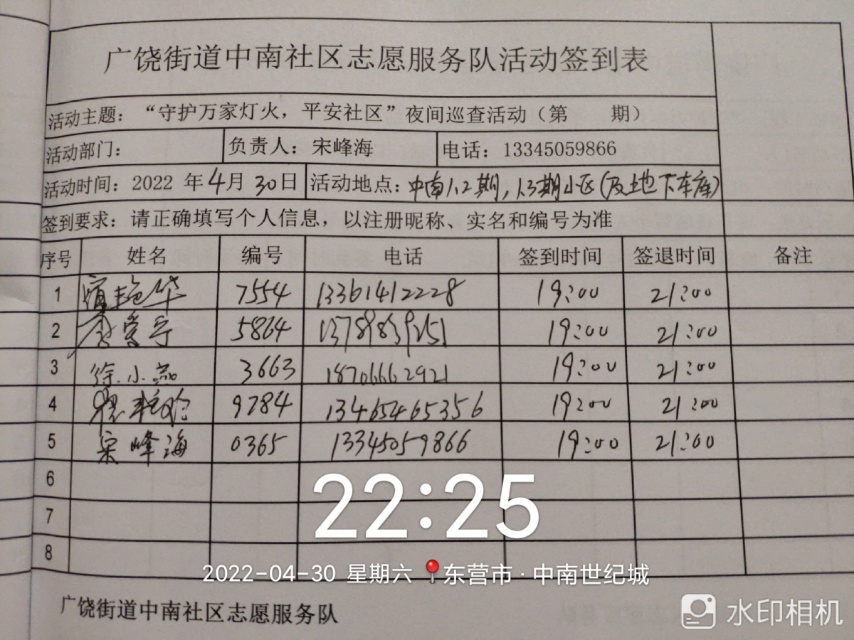 广饶街道中南社区志愿服务队活动签到表
活动主题：“守护万家灯火，平安社区”夜间巡查活动（第 期）
活动部门： 负责人：宋峰海 电话：13345059866
活动时间：2022 年4月30日 活动地点：中南1.2期，1.3期小区(及地下车库)
签到要求：请正确填写个人信息，以注册昵称、实名和编号为准
序号 姓名 编号 电话 签到时间 签退时间 备注
1 7554 13361412228 19:00 21:00
2 5864 19:00 21:00
3 徐小燕 3663 18706662921 19:00 21:00
4 9284 13465465356 19:00 21:00
5 宋峰海 0365 13345059866 19:00 21:00
6
7
8
22:25
2022-04-30 星期六 东营市·中南世纪城
广饶街道中南社区志愿服务队
水印相机